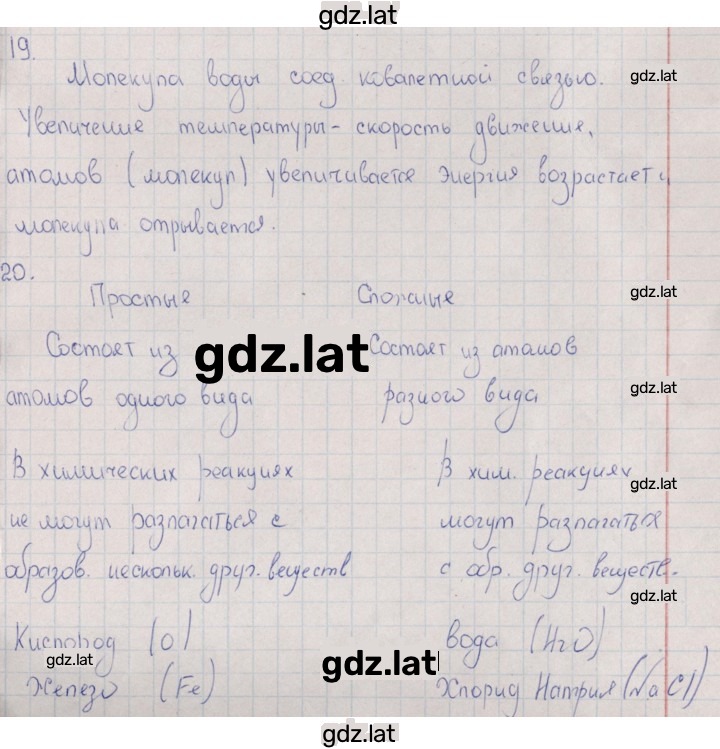 gdz.lat
19.
Молекула воды соед. ковалетной связью. gdz.lat
Увеличение температуры - скорость движение,
атомов (молекул) увеличивается Энергия возрастает и
молекула отрывается.
20.
Простые Сложные gdz.lat
Состоят из gdz.lat Состоят из атомов
атомов одного вида разного вида gdz.lat
В химических реакциях В хим. реакциях gdz.lat
не могут разлагаться с могут разлагаться
образов. нескольк. друг. веществ с обр. друг. веществ.
gdz.lat
Кислород (O) вода (H2O)
gdz.lat gdz.lat gdz.lat
Железо (Fe) Хлорид Натрия (NaCl)
gdz.lat